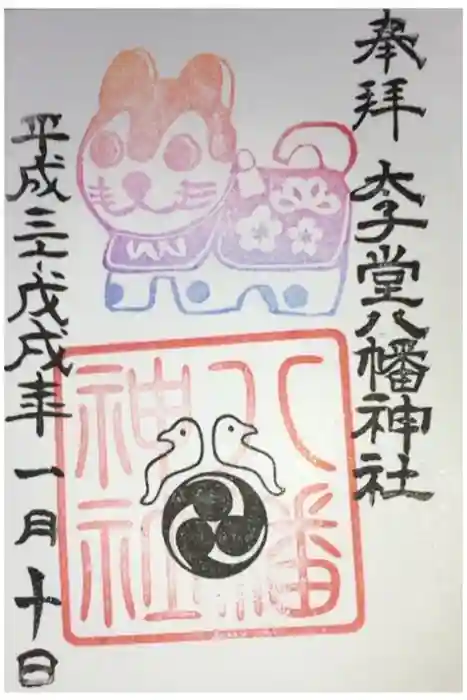 奉拝
太子堂八幡神社
八幡
神社
平成三十戊戌年一月十日